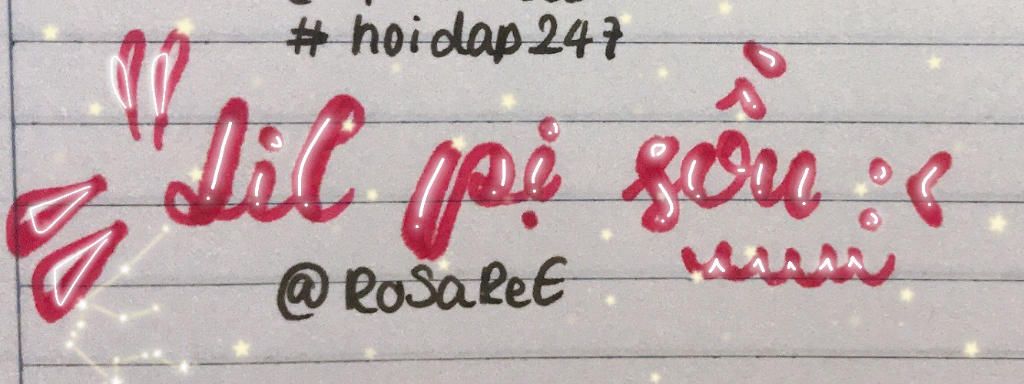 # hoidap247
Lil pị sồu :<
@RoSaReE